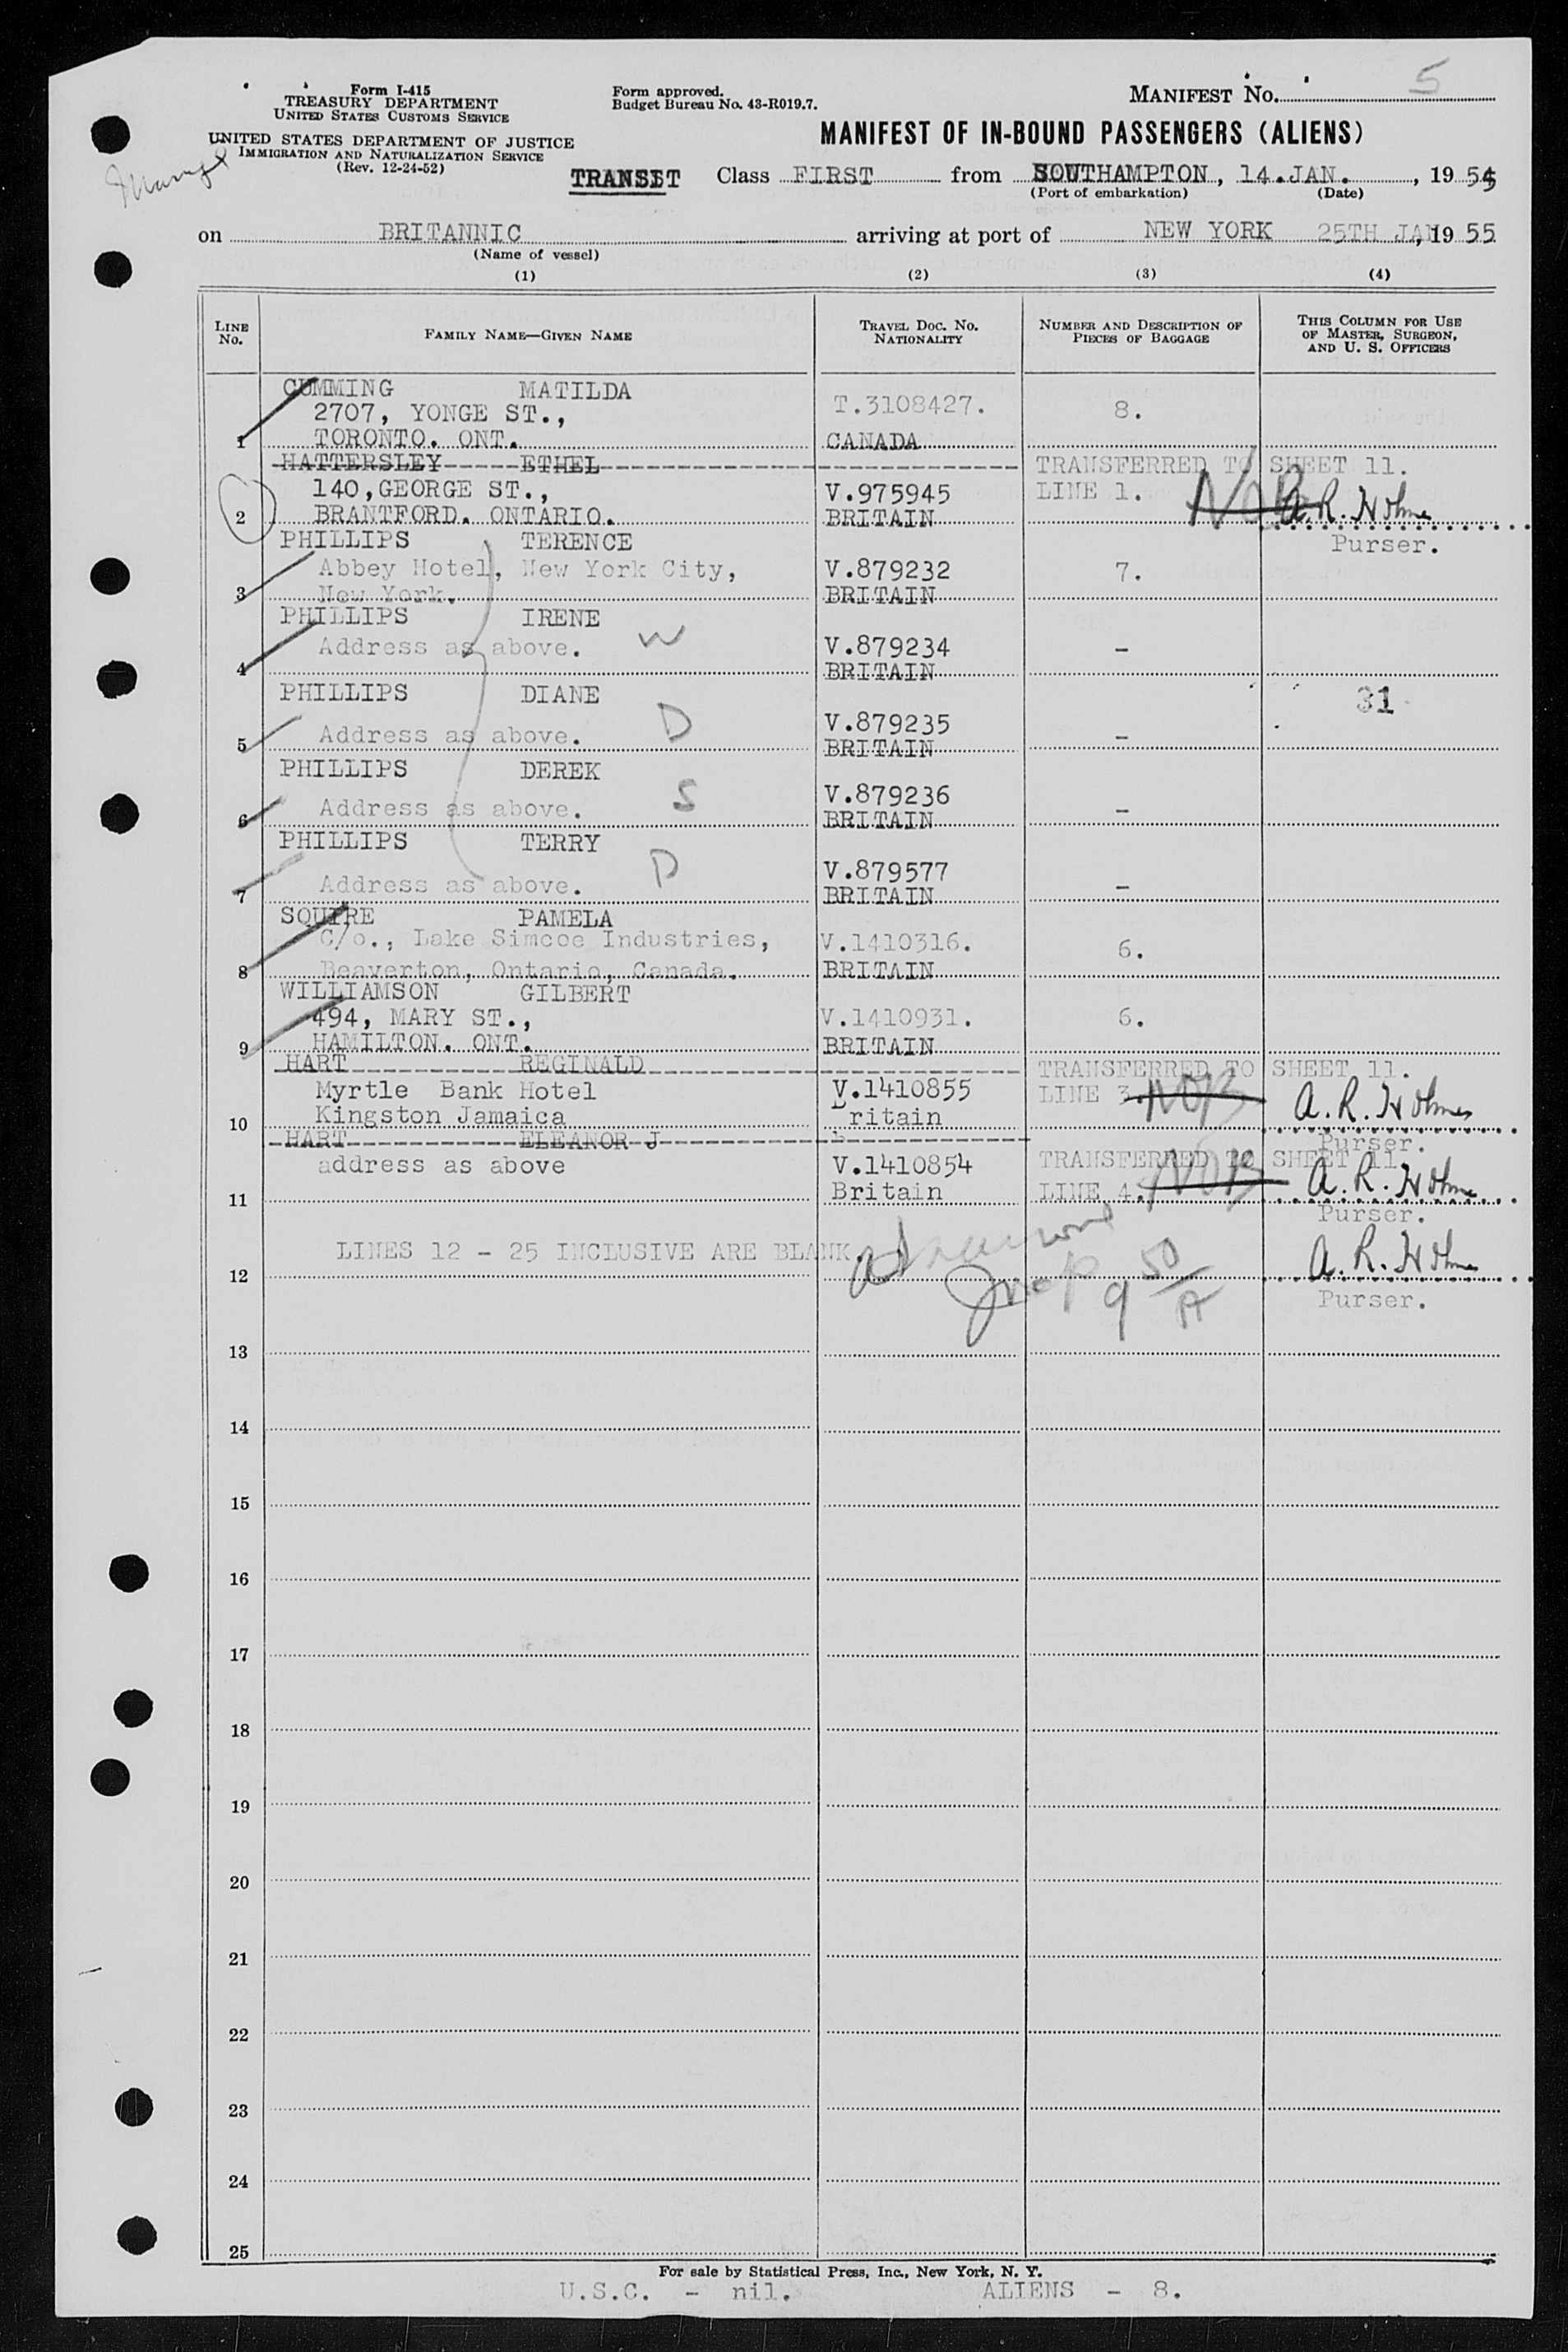 Form I-415
TREASURY DEPARTMENT
UNITED STATES CUSTOMS SERVICE
UNITED STATES DEPARTMENT OF JUSTICE
IMMIGRATION AND NATURALIZATION SERVICE
(Rev. 12-24-52)
Form approved.
Budget Bureau No. 43-R019.7.
MANIFEST No. 5
MANIFEST OF IN-BOUND PASSENGERS (ALIENS)
TRANSIT Class FIRST from SOUTHAMPTON, 14.JAN., 1955
(Port of embarkation) (Date)
on BRITANNIC arriving at port of NEW YORK 25TH JAN, 1955
(Name of vessel)
(1) (2) (3) (4)
LINE No. FAMILY NAME—GIVEN NAME TRAVEL DOC. No. NATIONALITY NUMBER AND DESCRIPTION OF PIECES OF BAGGAGE THIS COLUMN FOR USE OF MASTER, SURGEON, AND U. S. OFFICERS
CUMMING MATILDA
2707, YONGE ST., T.3108427. 8.
1 TORONTO. ONT. CANADA
HATTERSLEY ETHEL TRANSFERRED TO SHEET 11.
140,GEORGE ST., V.975945 LINE 1. NOB A.R. Holmes
2 BRANTFORD. ONTARIO. BRITAIN
Purser.
PHILLIPS TERENCE
Abbey Hotel, New York City, V.879232 7.
3 New York. BRITAIN
PHILLIPS IRENE
Address as above. W V.879234 -
4 BRITAIN
PHILLIPS DIANE 31
Address as above. D V.879235 -
5 BRITAIN
PHILLIPS DEREK
Address as above. S V.879236 -
6 BRITAIN
PHILLIPS TERRY
Address as above. D V.879577 -
7 BRITAIN
SQUIRE PAMELA
C/o., Lake Simcoe Industries, V.1410316. 6.
8 Beaverton, Ontario, Canada. BRITAIN
WILLIAMSON GILBERT
494, MARY ST., V.1410931. 6.
9 HAMILTON. ONT. BRITAIN
HART REGINALD TRANSFERRED TO SHEET 11.
Myrtle Bank Hotel V.1410855 LINE 3. NOB A.R. Holmes
10 Kingston Jamaica Britain
Purser.
HART ELEANOR J
address as above V.1410854 TRANSFERRED TO SHEET 11
11 Britain LINE 4. NOB A.R. Holmes
Purser.
LINES 12 - 25 INCLUSIVE ARE BLANK. A.R. Holmes
12 9 50/A
Purser.
13
14
15
16
17
18
19
20
21
22
23
24
25
For sale by Statistical Press, Inc., New York, N. Y.
U.S.C. - nil. ALIENS - 8.